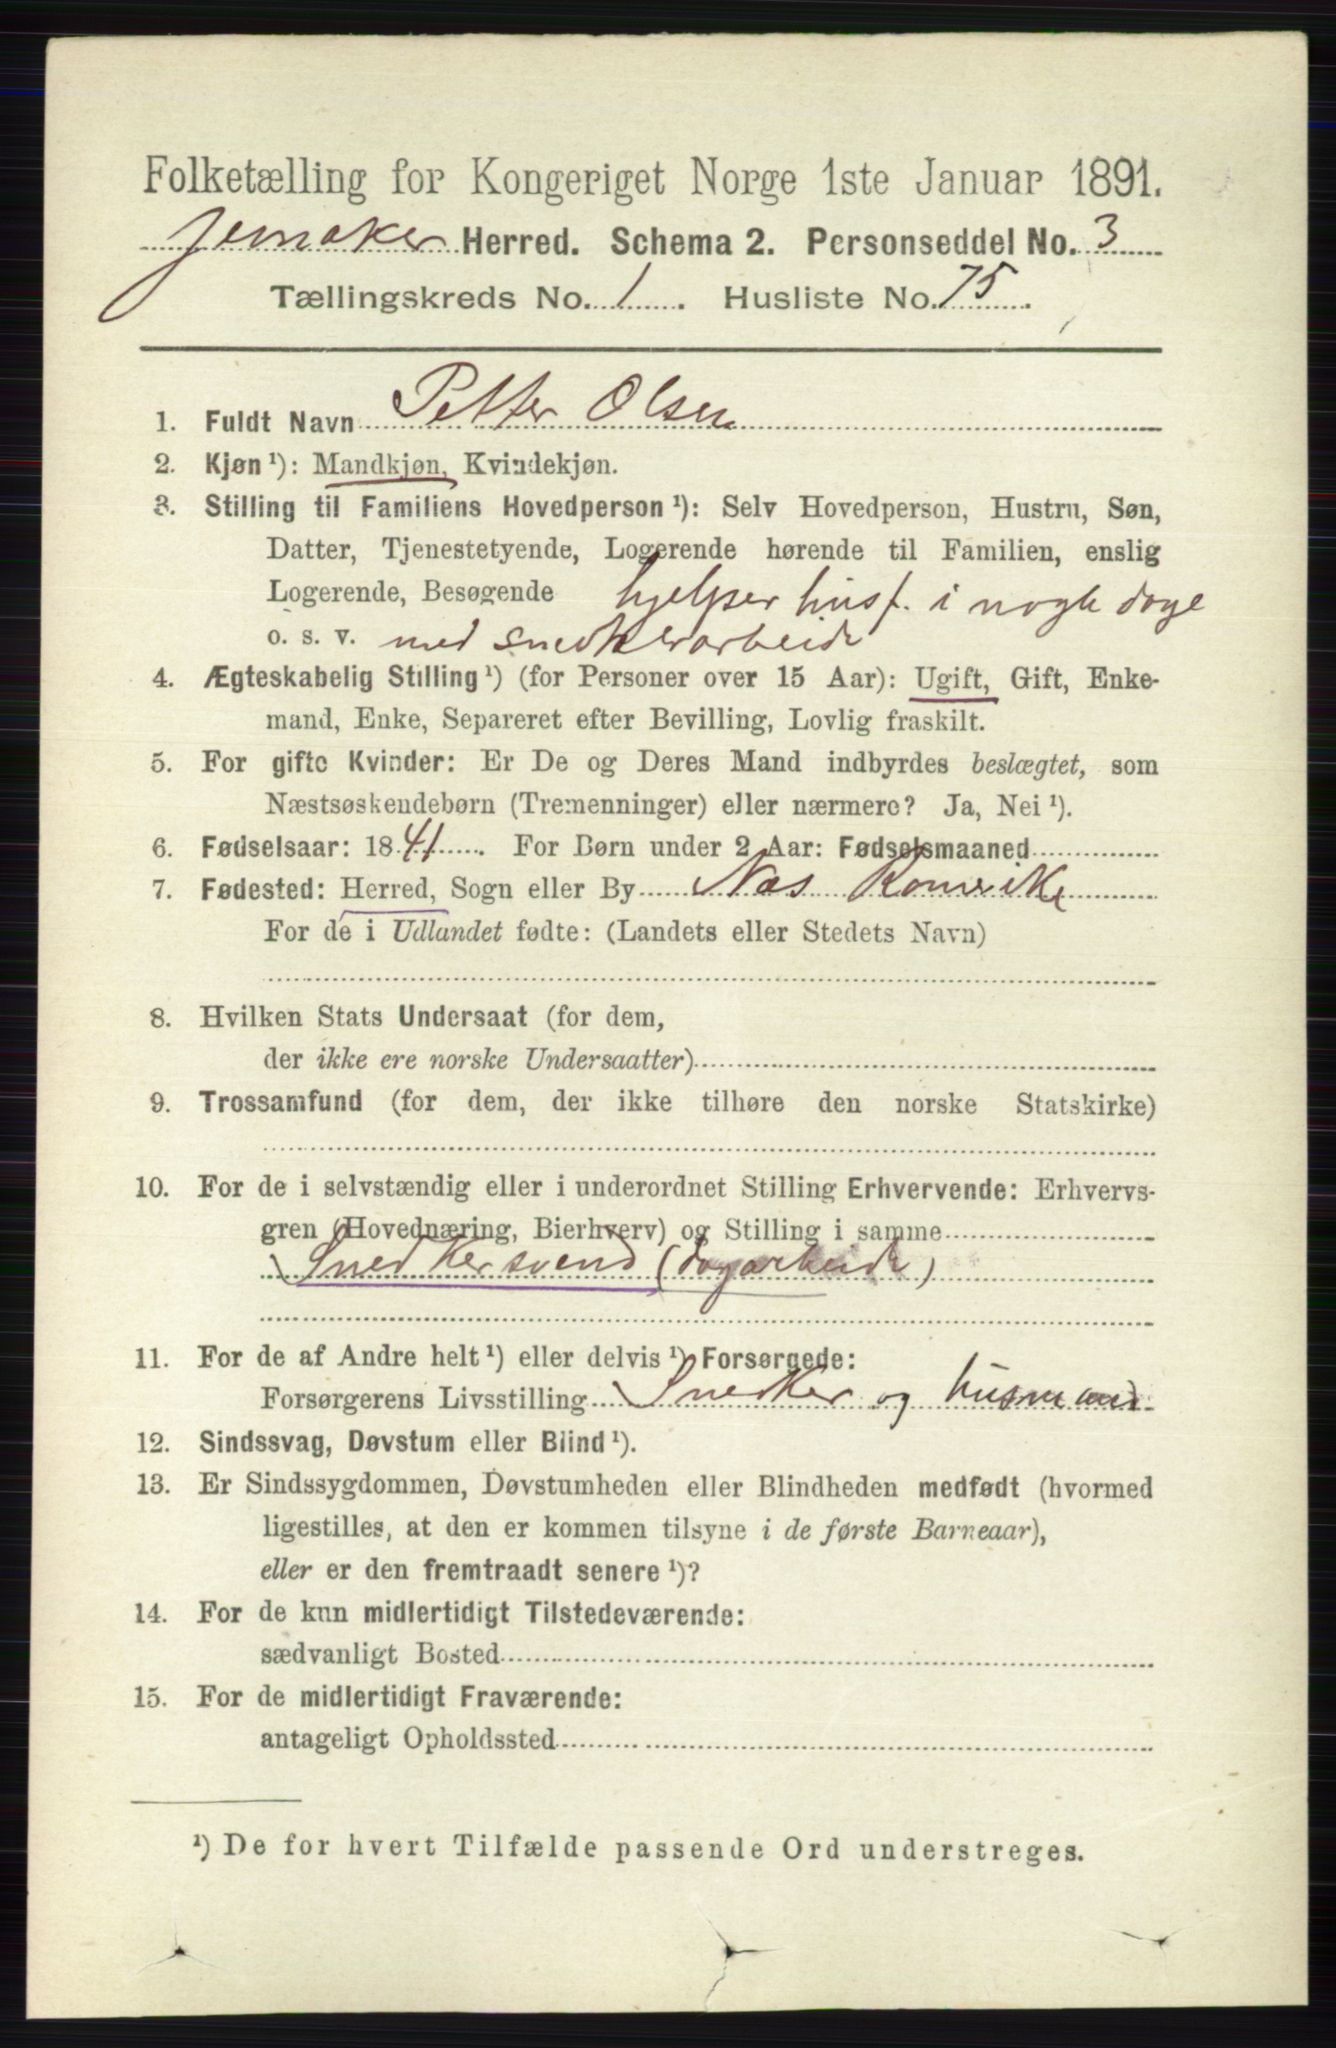 Folketælling for Kongeriget Norge 1ste Januar 1891.
Jevnaker Herred. Schema 2. Personseddel No. 3
Tællingskreds No. 1. Husliste No. 75.
1. Fuldt Navn Petter Olsen
2. Kjøn ¹): Mandkjøn, Kvindekjøn.
3. Stilling til Familiens Hovedperson ¹): Selv Hovedperson, Hustru, Søn,
Datter, Tjenestetyende, Logerende hørende til Familien, enslig
Logerende, Besøgende hjelper husf. i nogle dage
o. s. v. med snedkerarbeide
4. Ægteskabelig Stilling ¹) (for Personer over 15 Aar): Ugift, Gift, Enke-
mand, Enke, Separeret efter Bevilling, Lovlig fraskilt.
5. For gifte Kvinder: Er De og Deres Mand indbyrdes beslægtet, som
Næstsøskendebørn (Tremenninger) eller nærmere? Ja, Nei ¹).
6. Fødselsaar: 1841. For Børn under 2 Aar: Fødselsmaaned
7. Fødested: Herred, Sogn eller By Næs Romerike
For de i Udlandet fødte: (Landets eller Stedets Navn)
8. Hvilken Stats Undersaat (for dem,
der ikke ere norske Undersaatter)
9. Trossamfund (for dem, der ikke tilhøre den norske Statskirke)
10. For de i selvstændig eller i underordnet Stilling Erhvervende: Erhvervs-
gren (Hovednæring, Bierhverv) og Stilling i samme
Snedkersvend (dagarbeide)
11. For de af Andre helt ¹) eller delvis ¹) Forsørgede:
Forsørgerens Livsstilling Snedker og husmand
12. Sindssvag, Døvstum eller Blind ¹).
13. Er Sindssygdommen, Døvstumheden eller Blindheden medfødt (hvormed
ligestilles, at den er kommen tilsyne i de første Barneaar),
eller er den fremtraadt senere ¹)?
14. For de kun midlertidigt Tilstedeværende:
sædvanligt Bosted
15. For de midlertidigt Fraværende:
antageligt Opholdssted
¹) De for hvert Tilfælde passende Ord understreges.